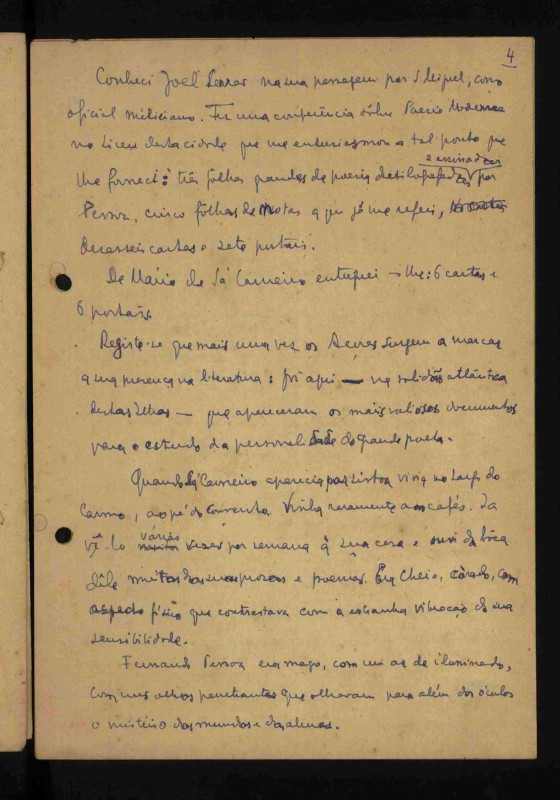 4
Conheci Joel Serrão na sua passagem por S. Miguel, como
oficial miliciano. Fez uma conferência sôbre Poesia Moderna
no Liceu desta cidade que me entusiasmou a tal ponto que
e assinadas
lhe forneci: três fôlhas grandes de poesia dactilografadas por
Pessoa, cinco fôlhas de notas a que já me referi,
dezasseis cartas e sete postais.
De Mário de Sá Carneiro entreguei-lhe: 6 cartas e
6 postais.
Registe-se que mais uma vez os Açores surgem a marcar
a sua presença na literatura: foi aqui — na solidão atlântica
destas Ilhas — que apareceram os mais valiosos documentos
para o estudo da personalidade do grande poeta.
Quando Sá Carneiro aparecia por Lisboa vivia no Largo do
Carmo, ao pé do Convento. Vinha raramente aos cafés. Ia
várias
vê-lo vezes por semana à sua casa e ouvi da bôca
dêle muitas das suas prosas e poemas. Era cheio, corado, com
aspecto físico que contrastava com a estranha vibração da sua
sensibilidade.
Fernando Pessoa era magro, com um ar de iluminado,
com uns olhos penetrantes que olhavam para além dos óculos
o mistério dos mundos e das almas.